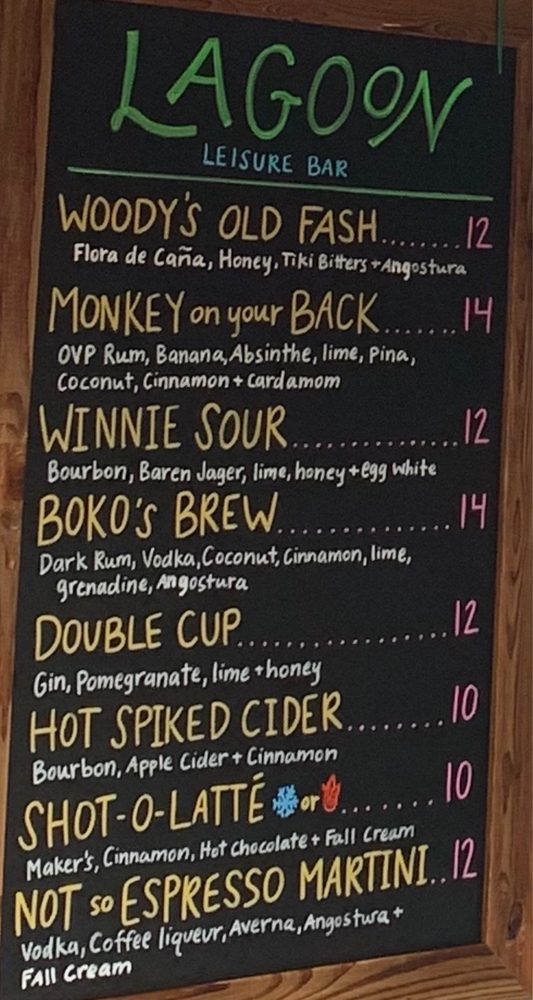 LAGOON
LEISURE BAR
WOODY'S OLD FASH........12
Flora de Caña, Honey, Tiki Bitters + Angostura
MONKEY on your BACK.......14
OVP Rum, Banana, Absinthe, lime, Pina,
Coconut, Cinnamon + Cardamom
WINNIE SOUR...............12
Bourbon, Baren Jager, lime, honey + egg white
BOKO'S BREW...............14
Dark Rum, Vodka, Coconut, Cinnamon, lime,
grenadine, Angostura
DOUBLE CUP..................12
Gin, Pomegranate, lime + honey
HOT SPIKED CIDER........10
Bourbon, Apple Cider + Cinnamon
SHOT-O-LATTÉ ❄️ or 🔥....... 10
Maker's, Cinnamon, Hot Chocolate + Fall Cream
NOT so ESPRESSO MARTINI..12
Vodka, Coffee liqueur, Averna, Angostura +
Fall Cream